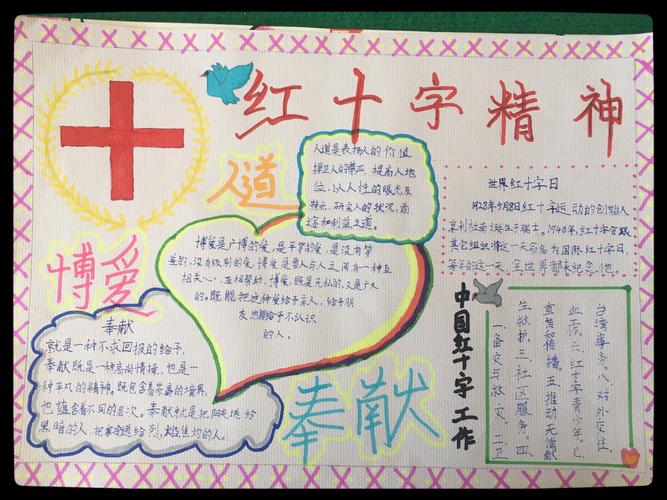 红十字精神
人道
人道是表扬人的价值
捍卫人的尊严,提高人地
位.以人性的眼光及
特点,研究人的状况,前
途和利益之道。
世界红十字日
1828年5月8日红十字运动的创始人
亨利杜南诞生于瑞士。1948年,红十字会
其它组织将这一天命名为国际红十字日,
每年的这一天,全世界都来纪念他。
博爱
博爱是广博的爱,是平常的爱,是没有等
差的,没有级别的爱,博爱是要人与人之间有一种互
相关心,互相帮助,博爱,既是无私的,又是广大
的。既能把这种爱给予亲人,给予朋
友,也能给予不认识
的人。
奉献
就是一种不求回报的给予,
奉献既是一种高尚情操,也是一
种平凡的精神,既包含着崇高的境界,
也蕴含着不同的层次。奉献就是把阳光送给
黑暗的人,把
送给
灼的人。
奉献
中国红十字工作
一.备灾与救灾。二.卫
生救护。三.社区服务。四.
宣传和传播.五.推动无偿献
血.六.红十字青少年.七.
台湾事务.八.对外交往.